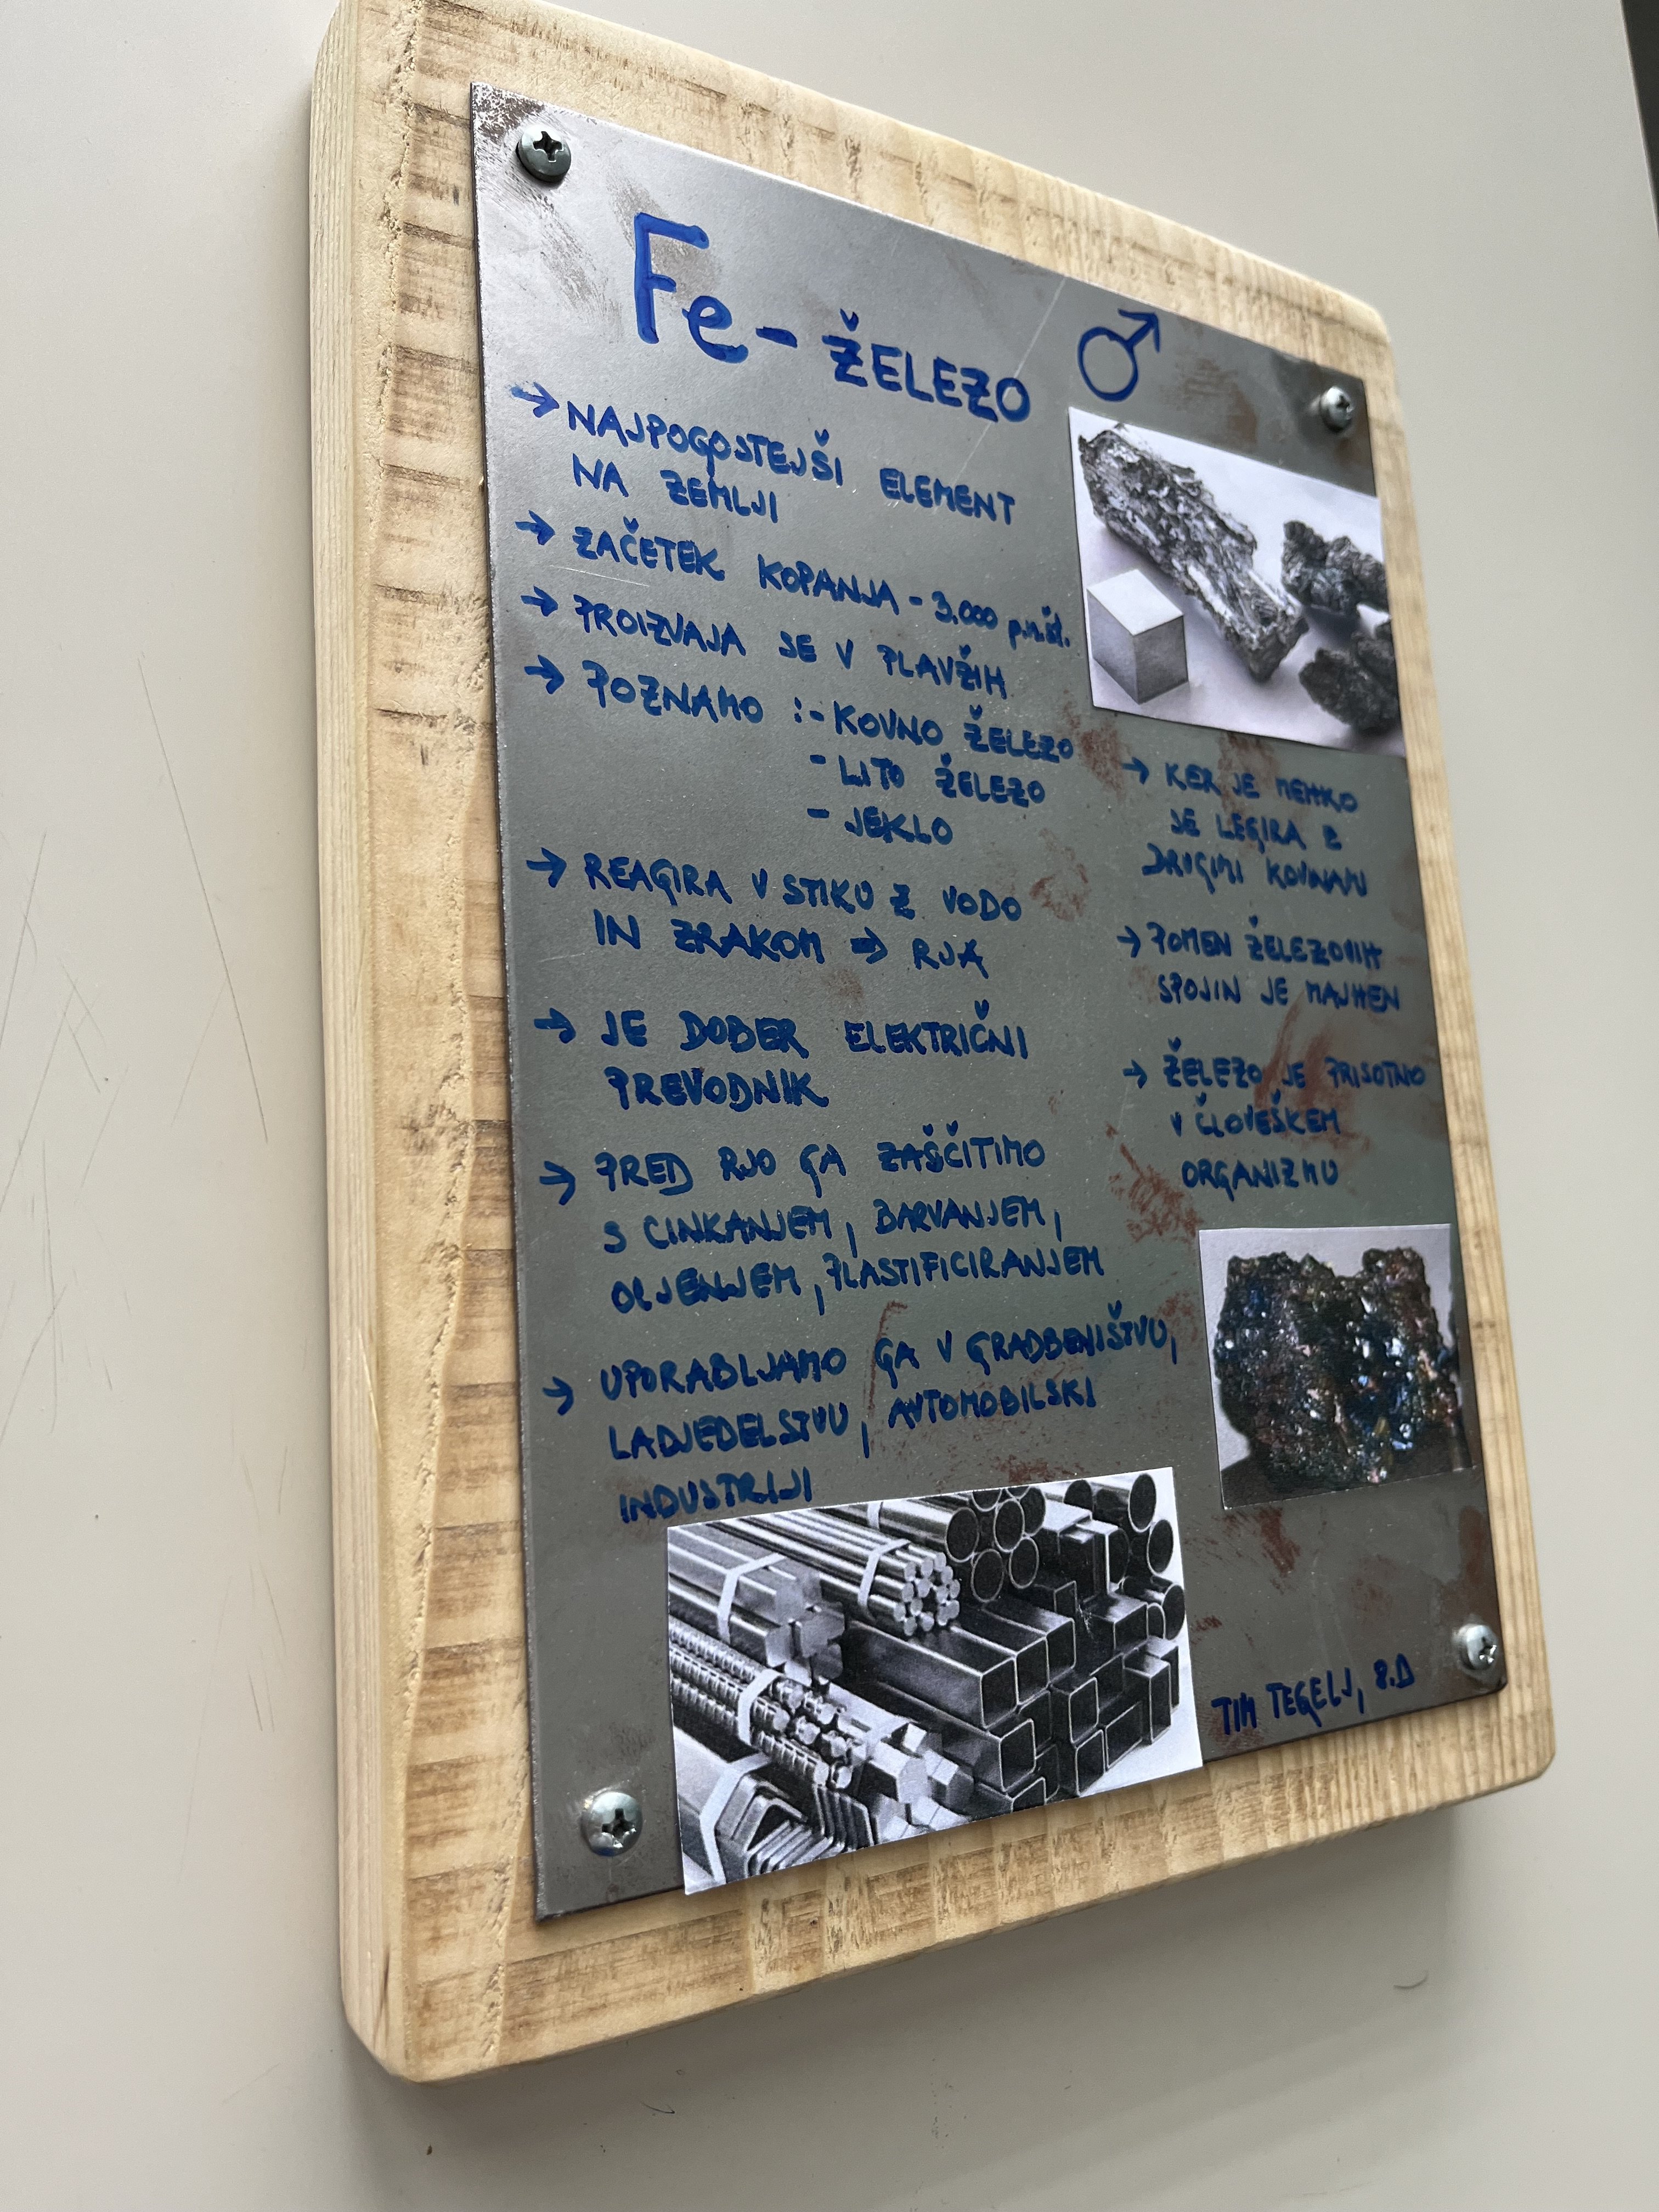 Fe - ŽELEZO ♂
→ NAJPOGOSTEJŠI ELEMENT
NA ZEMLJI
→ ZAČETEK KOPANJA - 3.000 p.n.št.
→ PROIZVAJA SE V PLAVŽIH
→ POZNAMO :- KOVNO ŽELEZO
- LITO ŽELEZO
- JEKLO
→ REAGIRA V STIKU Z VODO
IN ZRAKOM → RJA
→ JE DOBER ELEKTRIČNI
PREVODNIK
→ PRED RJO GA ZAŠČITIMO
S CINKANJEM, BARVANJEM,
OLJENJEM, PLASTIFICIRANJEM
→ UPORABLJAMO GA V GRADBENIŠTVU,
LADJEDELSTVU, AVTOMOBILSKI
INDUSTRIJI
→ KER JE MEHKO
SE LEGIRA Z
DRUGIMI KOVINAMI
→ POMEN ŽELEZOVIH
SPOJIN JE MAJHEN
→ ŽELEZO JE PRISOTNO
V ČLOVEŠKEM
ORGANIZMU
TIM TEGELJ, 8.D